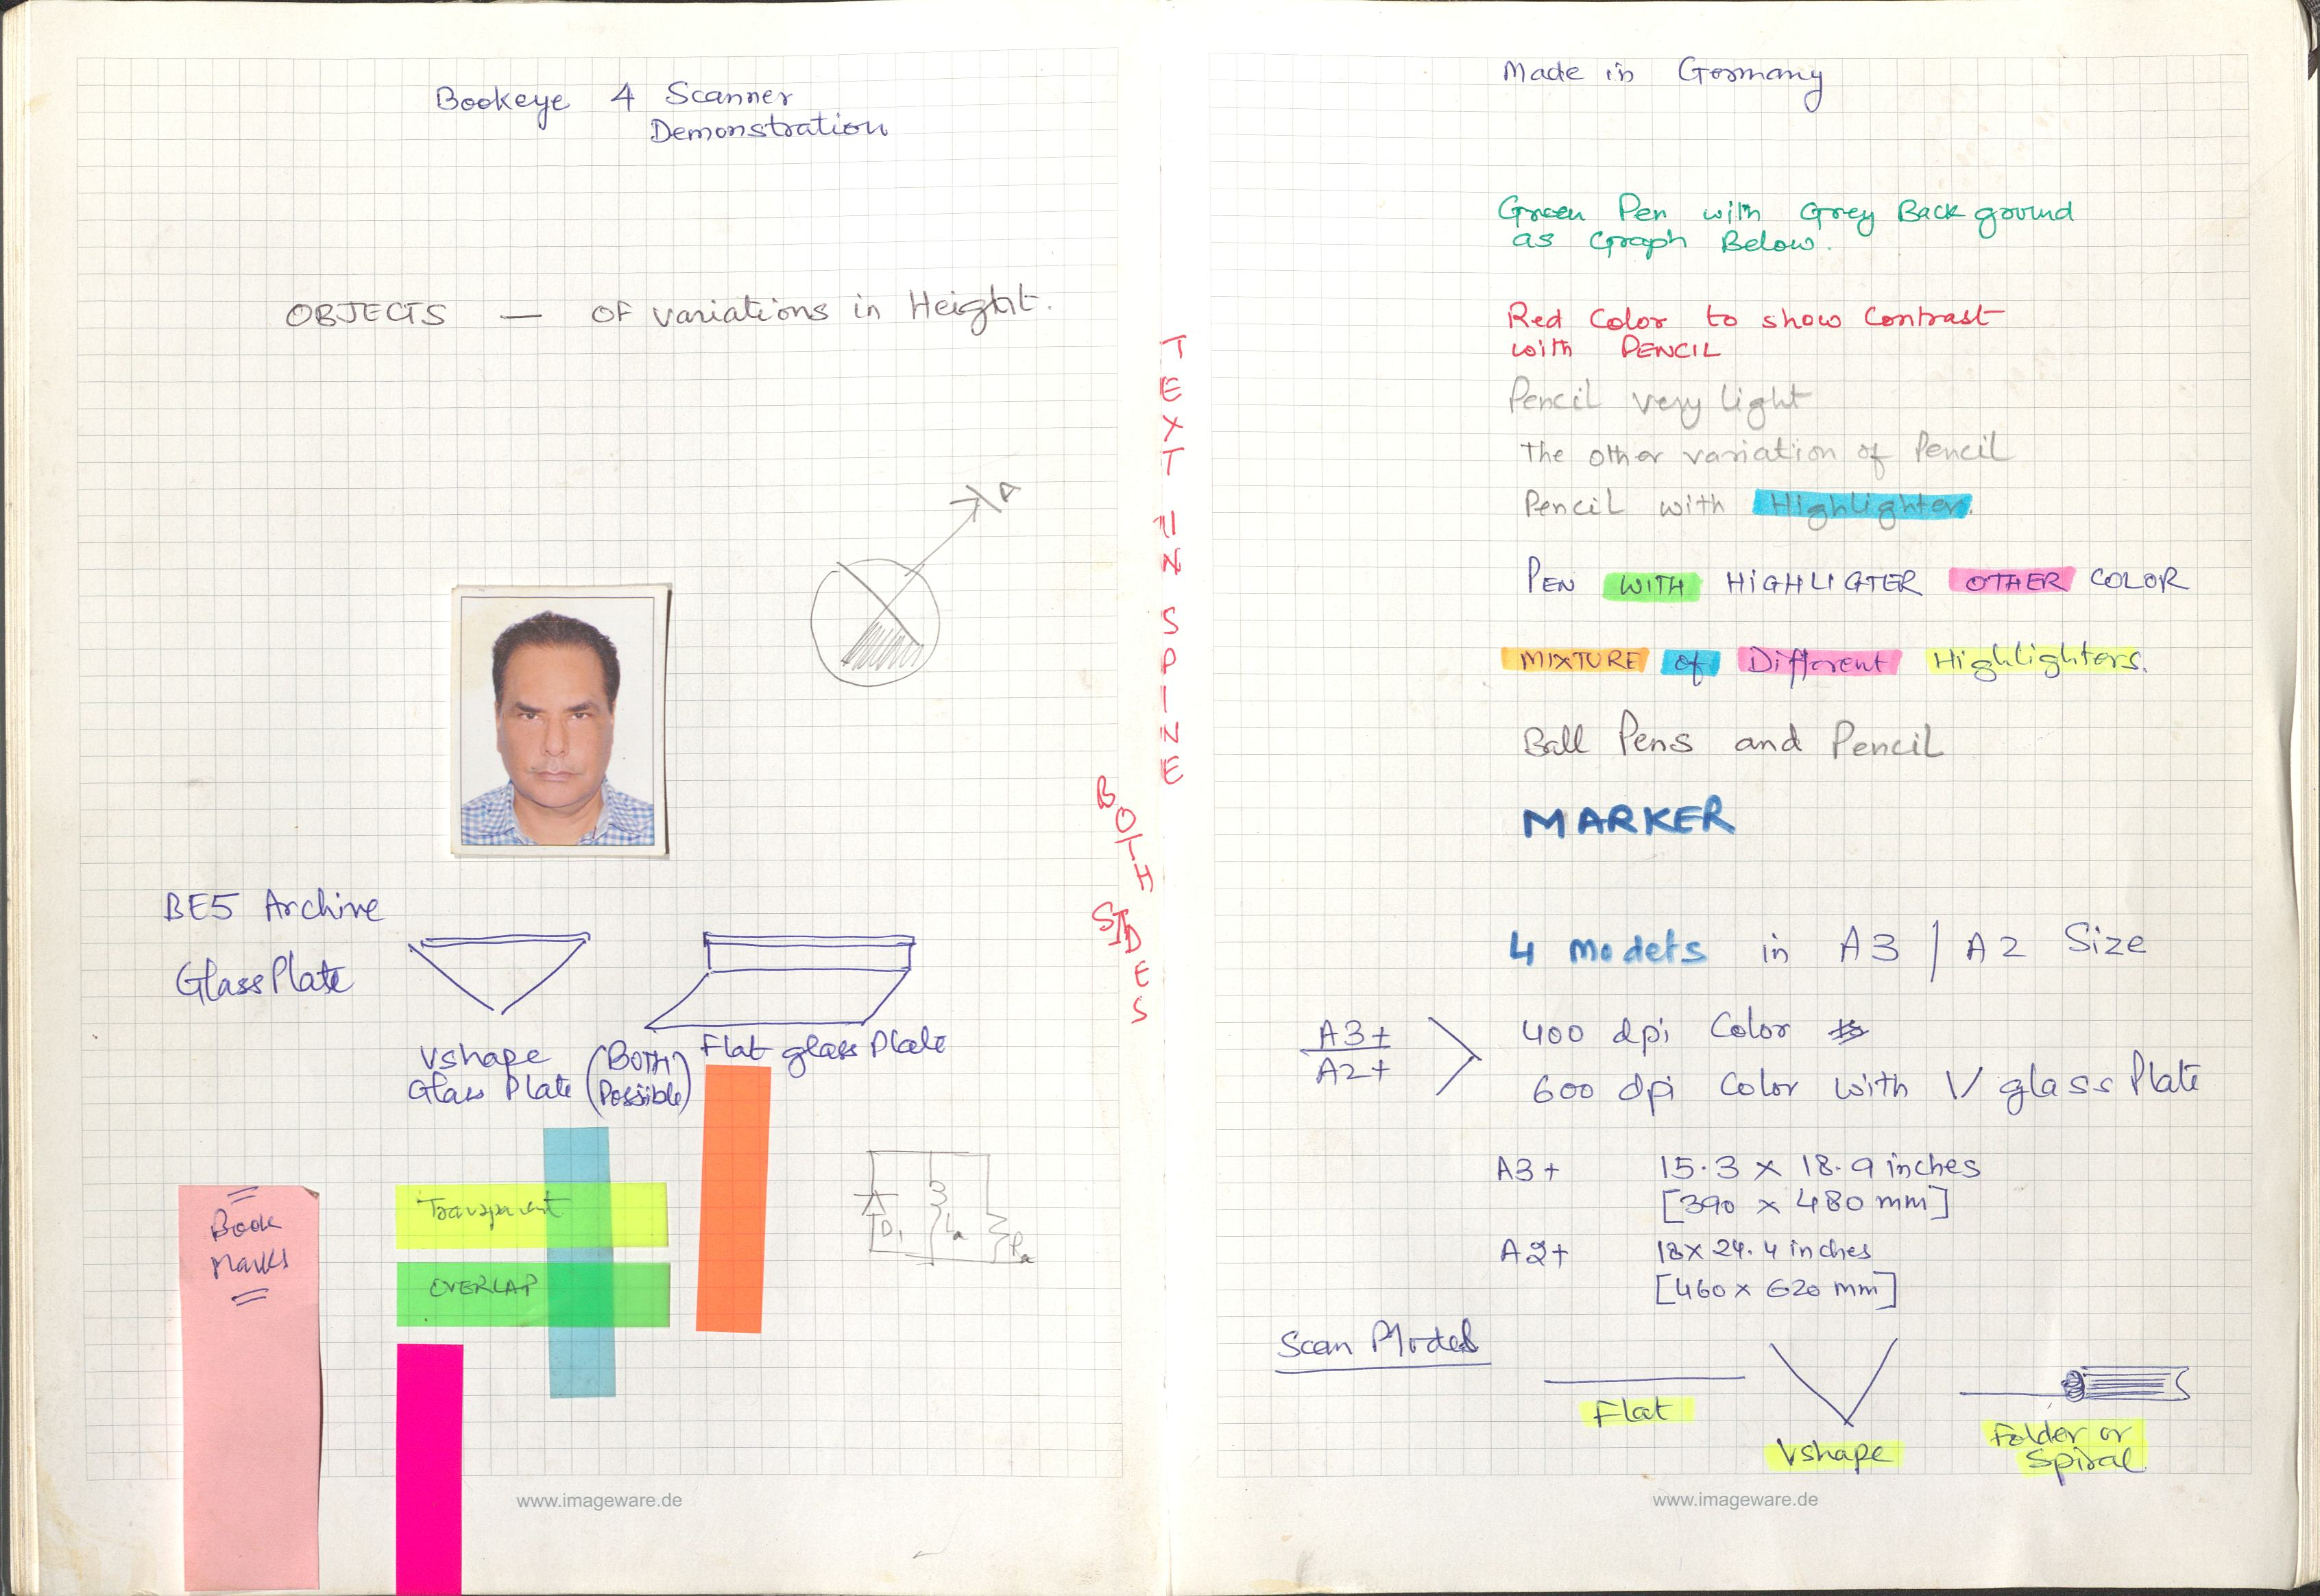 Bookeye 4 Scanner
Demonstration
OBJECTS — OF variations in Height.
A
BE5 Archive
Glass Plate
Vshape
Glass Plate
(BOTH
Possible)
Flat glass Plate
Book
Marks
Transparent
OVERLAP
D1
La
Ra
www.imageware.de
TEXT IN SPINE
BOTH SIDES
Made in Germany
Green Pen with Grey Back ground
as Graph Below.
Red Color to show Contrast
with PENCIL
Pencil very light
The other variation of Pencil
Pencil with Highlighter.
PEN WITH HIGHLIGTER OTHER COLOR
MIXTURE of Different Highlighters.
Ball Pens and Pencil
MARKER
4 models in A3 / A2 Size
A3+
A2+
400 dpi Color
600 dpi Color with V glass Plate
A3+ 15.3 x 18.9 inches
[390 x 480 mm]
A2+ 18 x 24.4 inches
[460 x 620 mm]
Scan Modes
Flat
Vshape
Folder or
Spiral
www.imageware.de